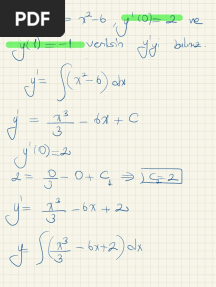 PDF
= x²-6, y'(0)=2 ve
y(1)=-1 verilsin y'yi bulunuz.
y' = ∫(x²-6)dx
y' = x³/3 - 6x + C
y'(0)=2
2 = 0/3 - 0 + C₁ ⇒ C₁=2
y' = x³/3 - 6x + 2
y = ∫(x³/3 - 6x+2)dx